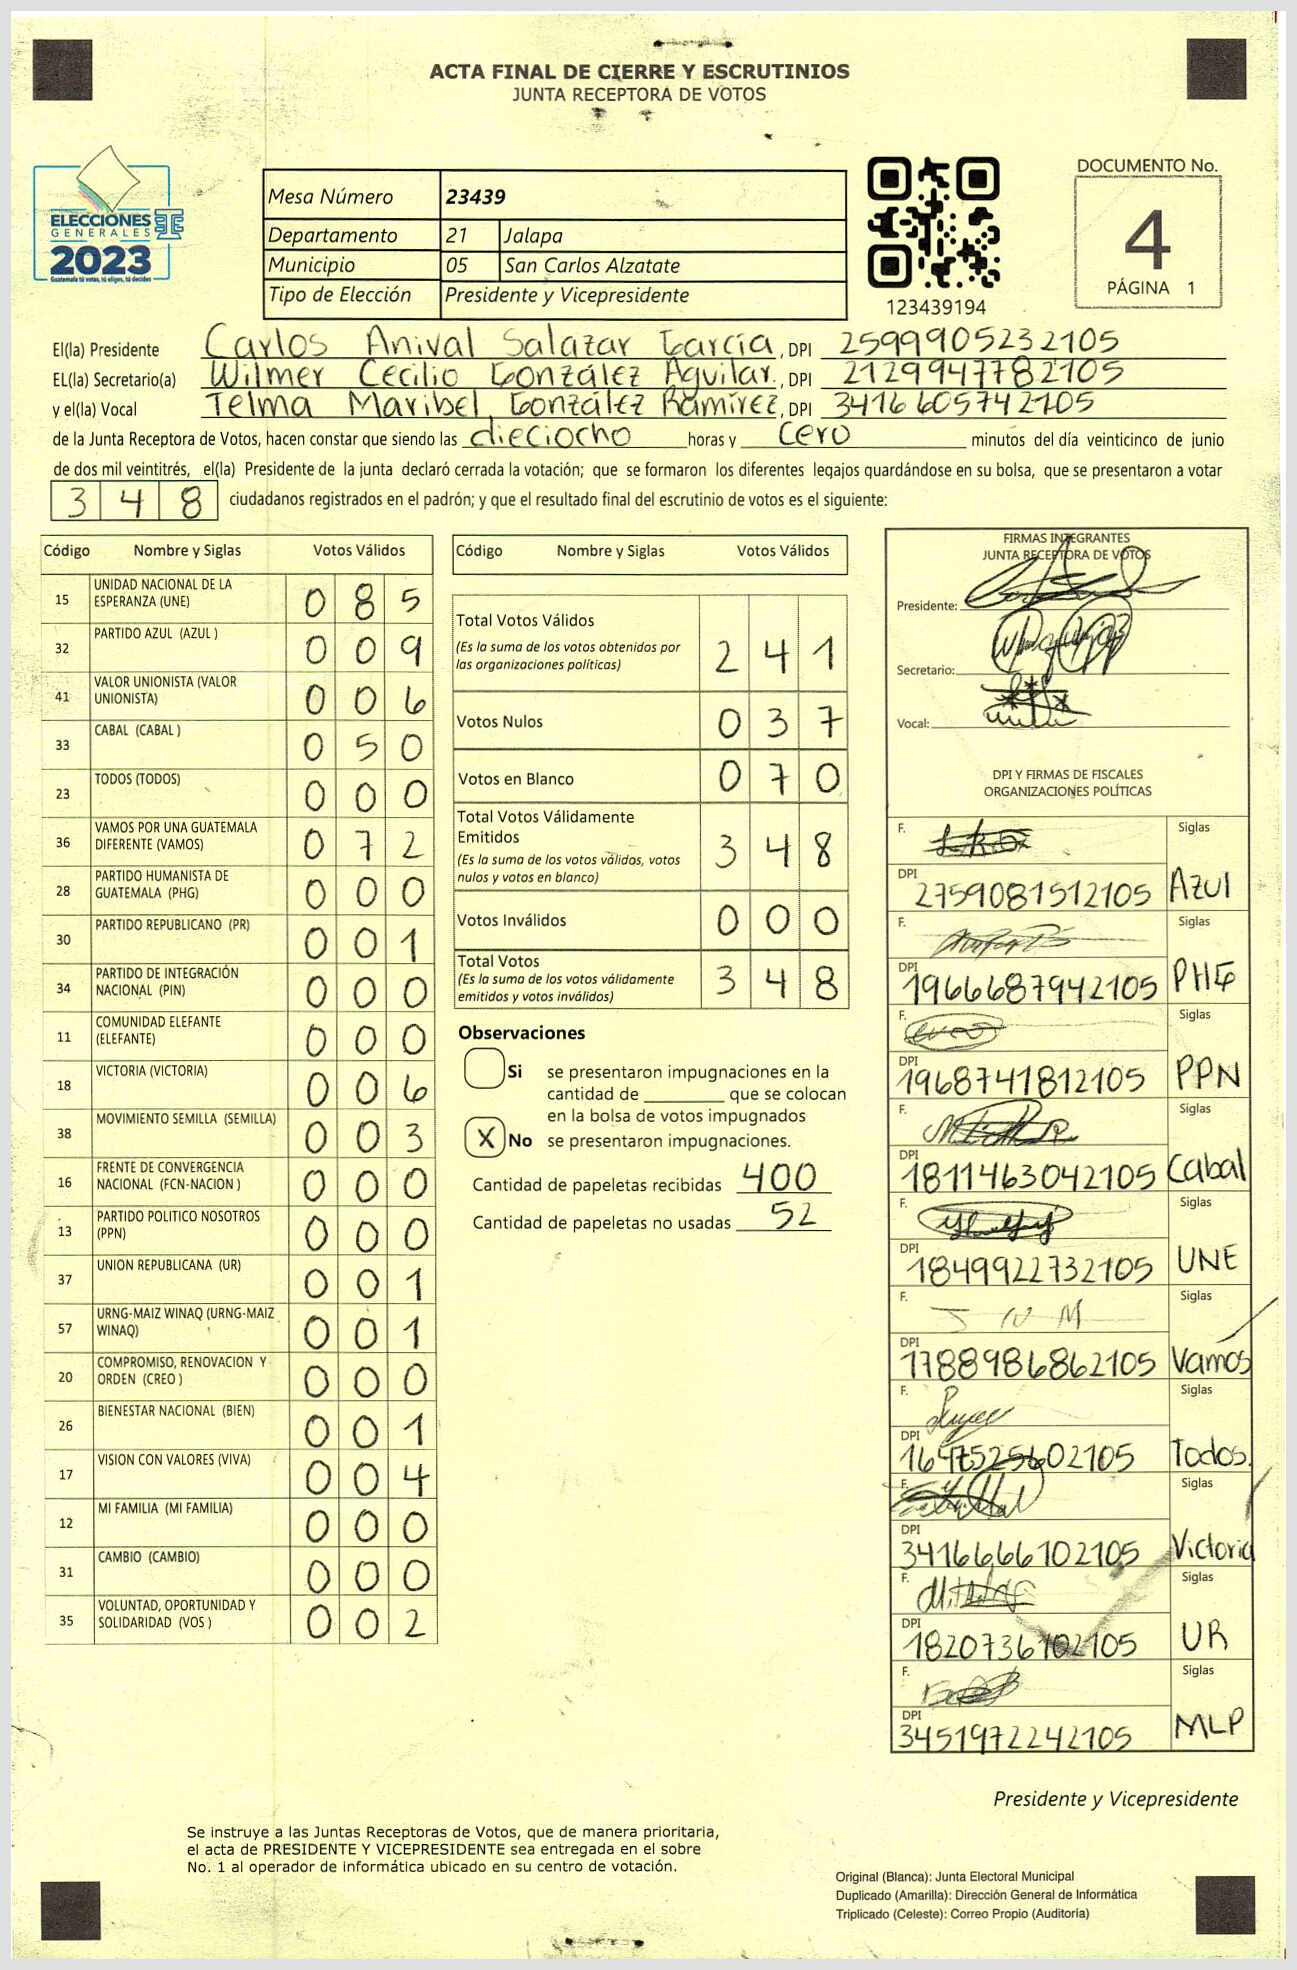 ACTA FINAL DE CIERRE Y ESCRUTINIOS
JUNTA RECEPTORA DE VOTOS
ELECCIONES
GENERALES
2023
Guatemala tú votas, tú eliges, tú decides
Mesa Número 23439
Departamento 21 Jalapa
Municipio 05 San Carlos Alzatate
Tipo de Elección Presidente y Vicepresidente
123439194
DOCUMENTO No.
4
PÁGINA 1
El(la) Presidente Carlos Anival Salazar García, DPI 2599905232105
EL(la) Secretario(a) Wilmer Cecilio González Aguilar., DPI 2129947782105
y el(la) Vocal Telma Maribel González Ramírez, DPI 3416605742105
de la Junta Receptora de Votos, hacen constar que siendo las dieciocho horas y cero minutos del día veinticinco de junio
de dos mil veintitrés, el(la) Presidente de la junta declaró cerrada la votación; que se formaron los diferentes legajos guardándose en su bolsa, que se presentaron a votar
348 ciudadanos registrados en el padrón; y que el resultado final del escrutinio de votos es el siguiente:
Código Nombre y Siglas Votos Válidos
15 UNIDAD NACIONAL DE LA ESPERANZA (UNE) 085
32 PARTIDO AZUL (AZUL ) 009
41 VALOR UNIONISTA (VALOR UNIONISTA) 006
33 CABAL (CABAL ) 050
23 TODOS (TODOS) 000
36 VAMOS POR UNA GUATEMALA DIFERENTE (VAMOS) 072
28 PARTIDO HUMANISTA DE GUATEMALA (PHG) 000
30 PARTIDO REPUBLICANO (PR) 001
34 PARTIDO DE INTEGRACIÓN NACIONAL (PIN) 000
11 COMUNIDAD ELEFANTE (ELEFANTE) 000
18 VICTORIA (VICTORIA) 006
38 MOVIMIENTO SEMILLA (SEMILLA) 003
16 FRENTE DE CONVERGENCIA NACIONAL (FCN-NACION ) 000
13 PARTIDO POLITICO NOSOTROS (PPN) 000
37 UNION REPUBLICANA (UR) 001
57 URNG-MAIZ WINAQ (URNG-MAIZ WINAQ) 001
20 COMPROMISO, RENOVACION Y ORDEN (CREO ) 000
26 BIENESTAR NACIONAL (BIEN) 001
17 VISION CON VALORES (VIVA) 004
12 MI FAMILIA (MI FAMILIA) 000
31 CAMBIO (CAMBIO) 000
35 VOLUNTAD, OPORTUNIDAD Y SOLIDARIDAD (VOS ) 002
Código Nombre y Siglas Votos Válidos
Total Votos Válidos 241
(Es la suma de los votos obtenidos por
las organizaciones políticas)
Votos Nulos 037
Votos en Blanco 070
Total Votos Válidamente
Emitidos 348
(Es la suma de los votos válidos, votos
nulos y votos en blanco)
Votos Inválidos 000
Total Votos 348
(Es la suma de los votos válidamente
emitidos y votos inválidos)
Observaciones
Si se presentaron impugnaciones en la
cantidad de ________ que se colocan
en la bolsa de votos impugnados
X No se presentaron impugnaciones.
Cantidad de papeletas recibidas 400
Cantidad de papeletas no usadas 52
FIRMAS INTEGRANTES
JUNTA RECEPTORA DE VOTOS
Presidente:
Secretario:
Vocal:
DPI Y FIRMAS DE FISCALES
ORGANIZACIONES POLÍTICAS
F. Siglas
DPI 2759081512105 Azul
F. Siglas
DPI 1966687942105 PHG
F. Siglas
DPI 1968741812105 PPN
F. Siglas
DPI 1811463042105 Cabal
F. Siglas
DPI 1849922732105 UNE
F. Siglas
DPI 1788986862105 Vamos
F. Siglas
DPI 1647525602105 Todos.
F. Siglas
DPI 3416666102105 Victoria
F. Siglas
DPI 1820736102105 UR
F. Siglas
DPI 3451972242105 MLP
Presidente y Vicepresidente
Se instruye a las Juntas Receptoras de Votos, que de manera prioritaria,
el acta de PRESIDENTE Y VICEPRESIDENTE sea entregada en el sobre
No. 1 al operador de informática ubicado en su centro de votación.
Original (Blanca): Junta Electoral Municipal
Duplicado (Amarilla): Dirección General de Informática
Triplicado (Celeste): Correo Propio (Auditoría)